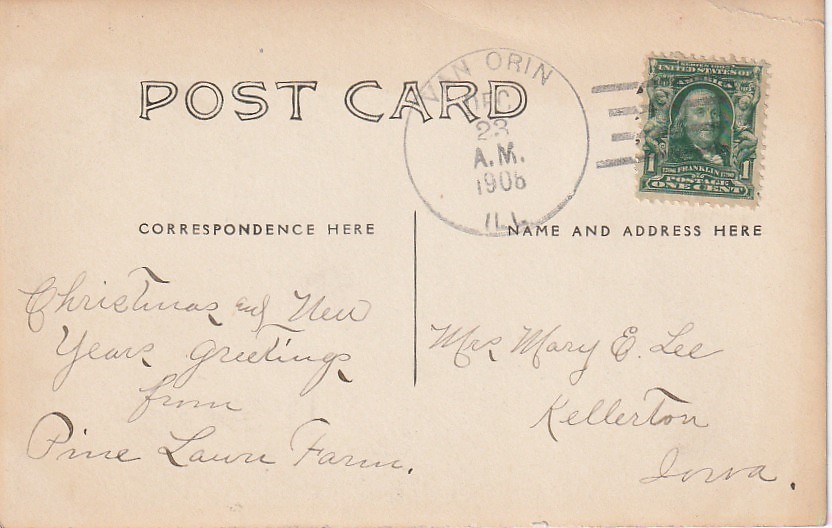 POST CARD
VAN ORIN
DEC
23
A.M.
1908
ILL.
UNITED STATES OF
AMERICA
1 FRANKLIN 1
POSTAGE
ONE CENT
CORRESPONDENCE HERE
NAME AND ADDRESS HERE
Christmas and New
Years greetings
from
Pine Lawn Farm.
Mrs Mary E. Lee
Kellerton
Iowa.